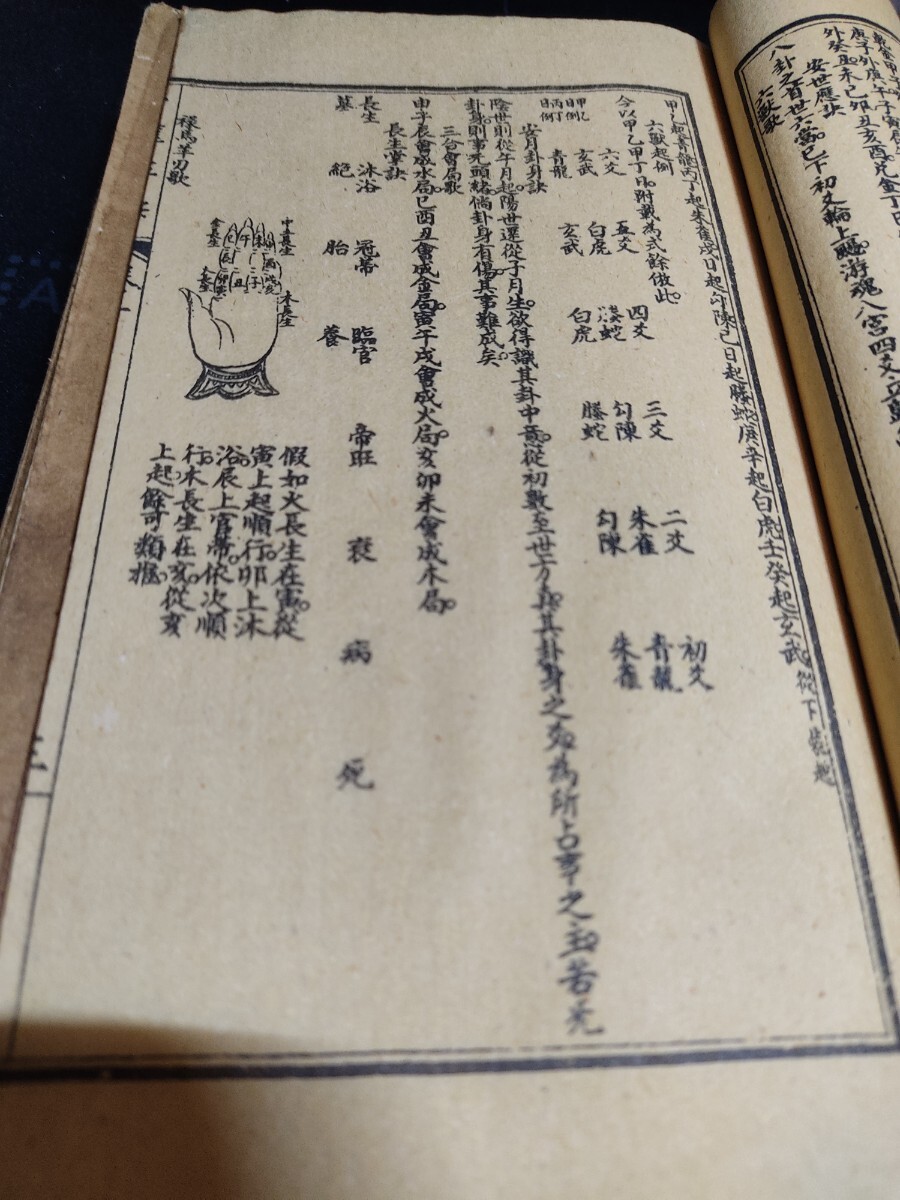 八卦之首世六當已下初爻輪上颺游魂八宮四爻立
六獸歌
甲乙起青龍丙丁起朱雀戊日起勾陳己日起螣蛇庚辛起白虎壬癸起玄武從下裝起
六獸起例
今以甲乙丙丁日附載為式餘倣此
六爻 五爻 四爻 三爻 二爻 初爻
甲乙日例 玄武 白虎 螣蛇 勾陳 朱雀 青龍
丙丁日例 青龍 玄武 白虎 螣蛇 勾陳 朱雀
安月卦身訣
陰世則從午月起陽世還從子月生欲得識其卦中意從初數至世方真其卦身之爻為所占事之主若無
卦身則事无頭緒倘卦身有傷其事難成矣
三合會局歌
申子辰會成水局巳酉丑會成金局寅午戌會成火局亥卯未會成木局
長生掌訣
長生 沐浴 冠帶 臨官 帝旺 衰 病 死
墓 絕 胎 養
木長生
金長生
假如火長生在寅從
寅上起順行卯上沐
浴辰上官帶依次順
行木長生在亥從亥
上起餘可類推
祿馬羊刃歌